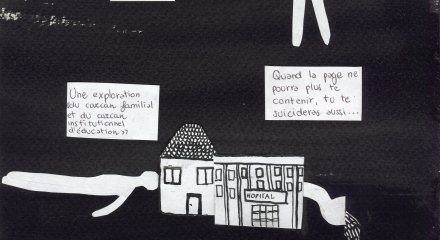 Quand la page ne
pourra plus te
contenir, tu te
suicideras aussi...
Une exploration
du carcan familial
et du carcan
institutionnel
d'éducation ??
HOPITAL